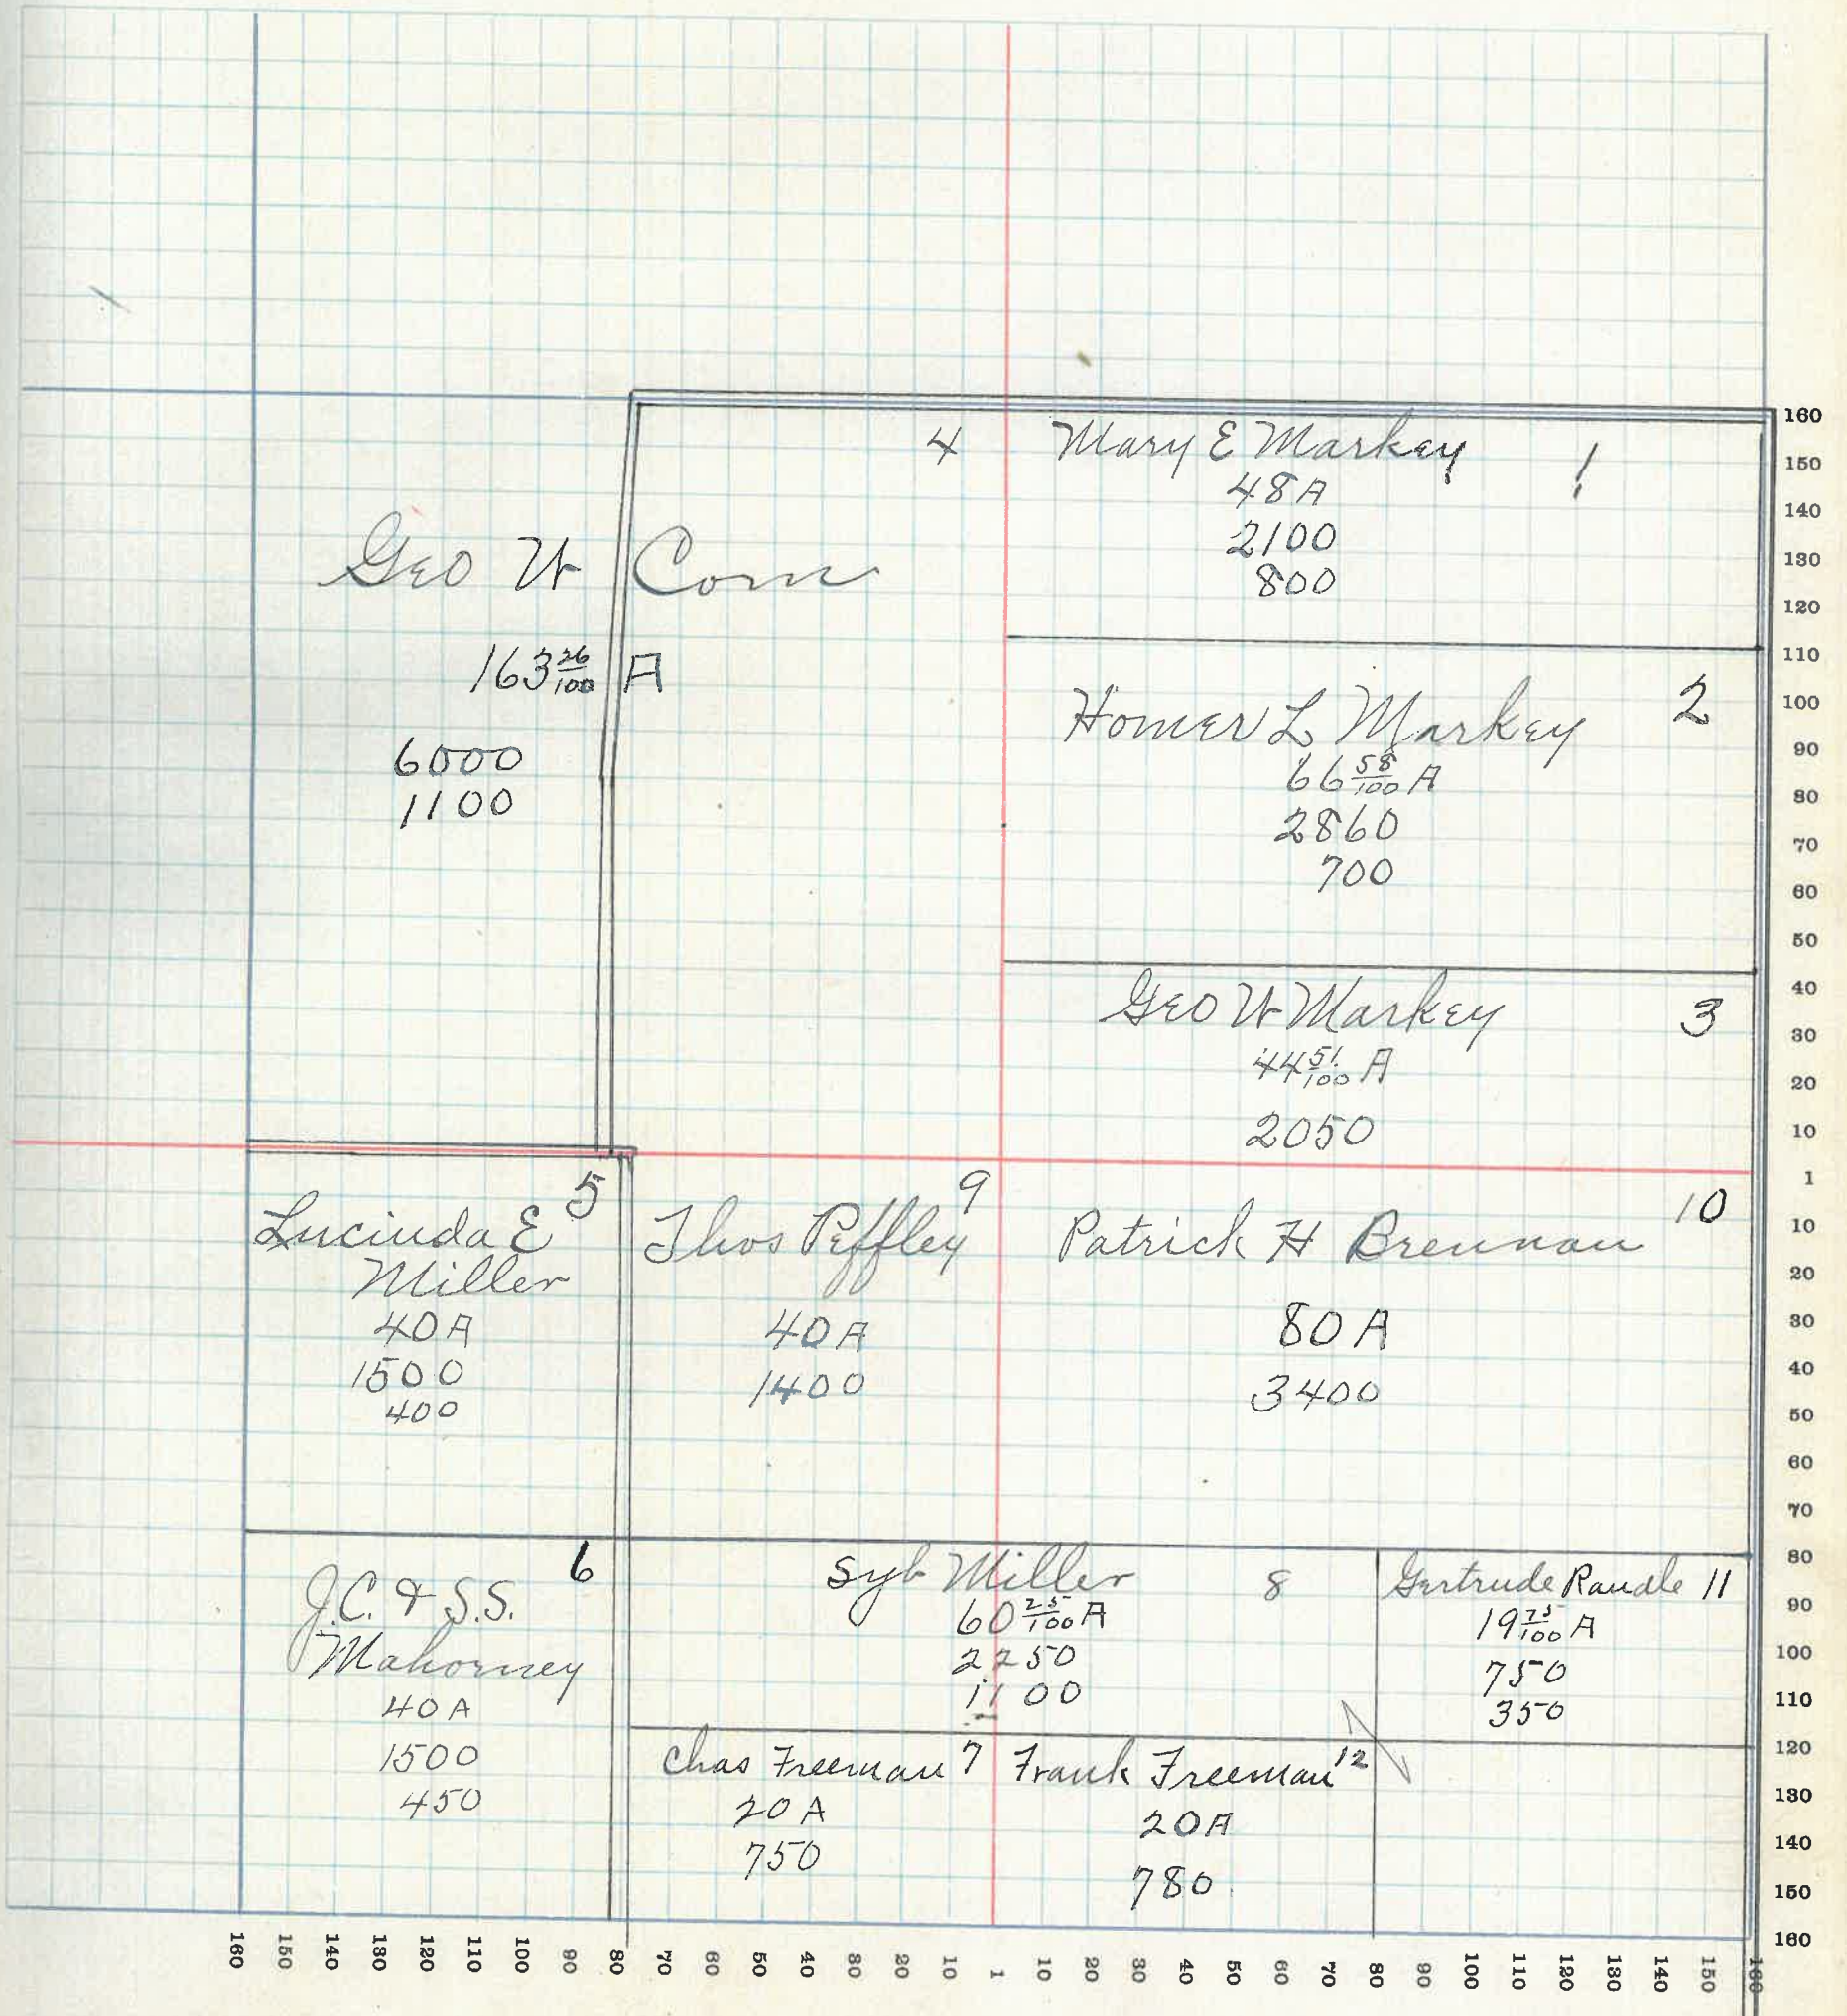 4
Mary E Markey
1
48 A
2100
800
Geo W Corn
163 26/100 A
6000
1100
Homer L Markey
2
66 58/100 A
2860
700
Geo W Markey
3
44 51/100 A
2050
Lucinda E
Miller
5
40 A
1500
400
Thos Peffley
9
40 A
1400
Patrick H Brennan
10
80 A
3400
J.C. & S.S.
Mahorney
6
40 A
1500
450
Syb Miller
8
60 25/100 A
2250
1100
Gertrude Randle 11
19 75/100 A
750
350
Chas Freeman 7
20 A
750
Frank Freeman 12
20 A
780
160
150
140
130
120
110
100
90
80
70
60
50
40
30
20
10
1
10
20
30
40
50
60
70
80
90
100
110
120
130
140
150
160
160 150 140 130 120 110 100 90 80 70 60 50 40 30 20 10 1 10 20 30 40 50 60 70 80 90 100 110 120 130 140 150 160